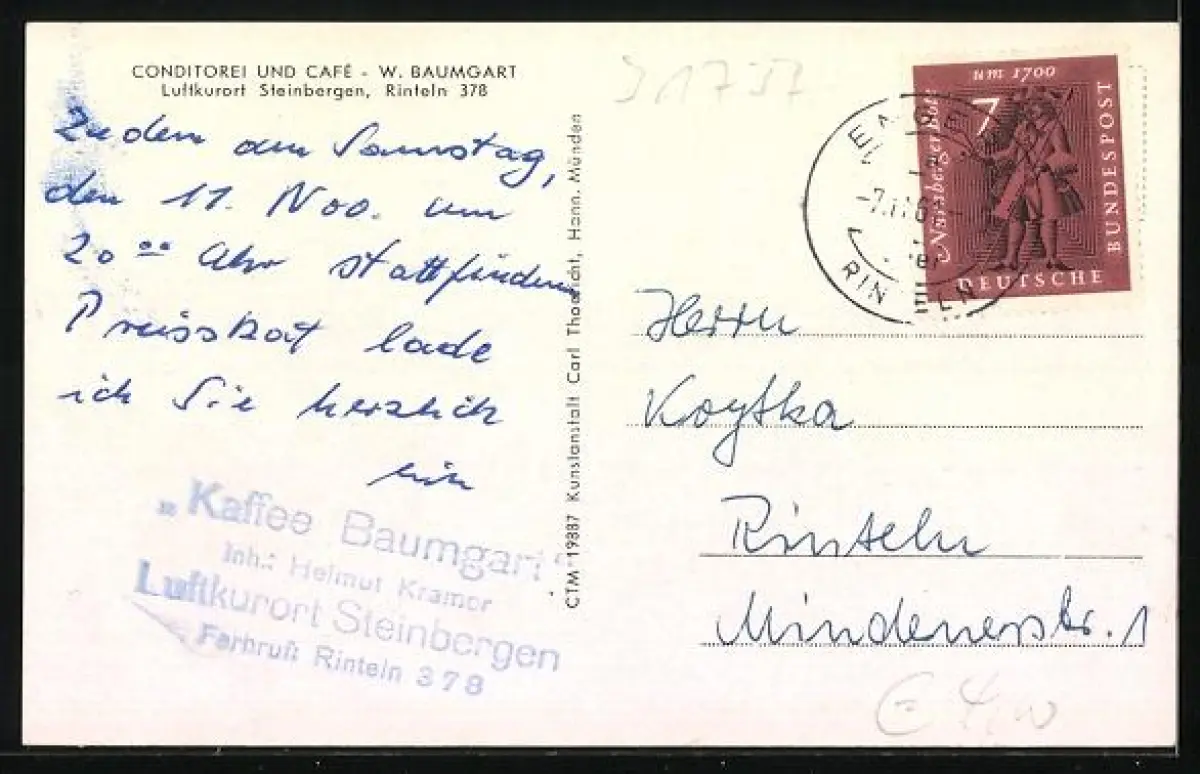 CONDITOREI UND CAFÉ - W. BAUMGART
Luftkurort Steinbergen, Rinteln 378
Zu dem am Samstag,
den 11. Nov. um
20 00 Uhr stattfindenden
Preisskat lade
ich Sie herzlich
ein
„Kaffee Baumgart"
Inh.: Helmut Kramer
Luftkurort Steinbergen
Fernruf Rinteln 378
CTM 19887 Kunstanstalt Carl Thoericht, Hann. Münden
um 1700
7
Nürnberger Bote
DEUTSCHE
BUNDESPOST
-7.11.6
RINTELN
Herrn
Koytka
Rinteln
Mindenerstr. 1